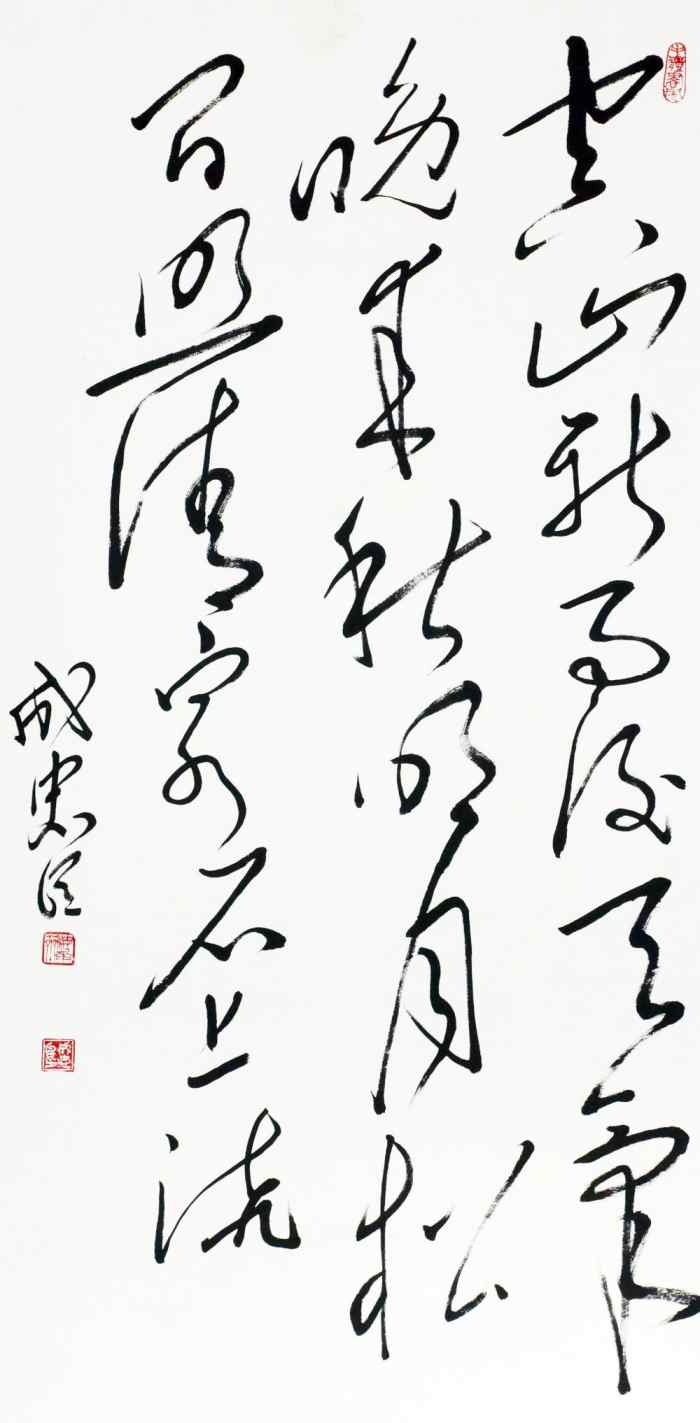 空山新雨後天氣
晚來秋明月松
間照清泉石上流
成忠臣